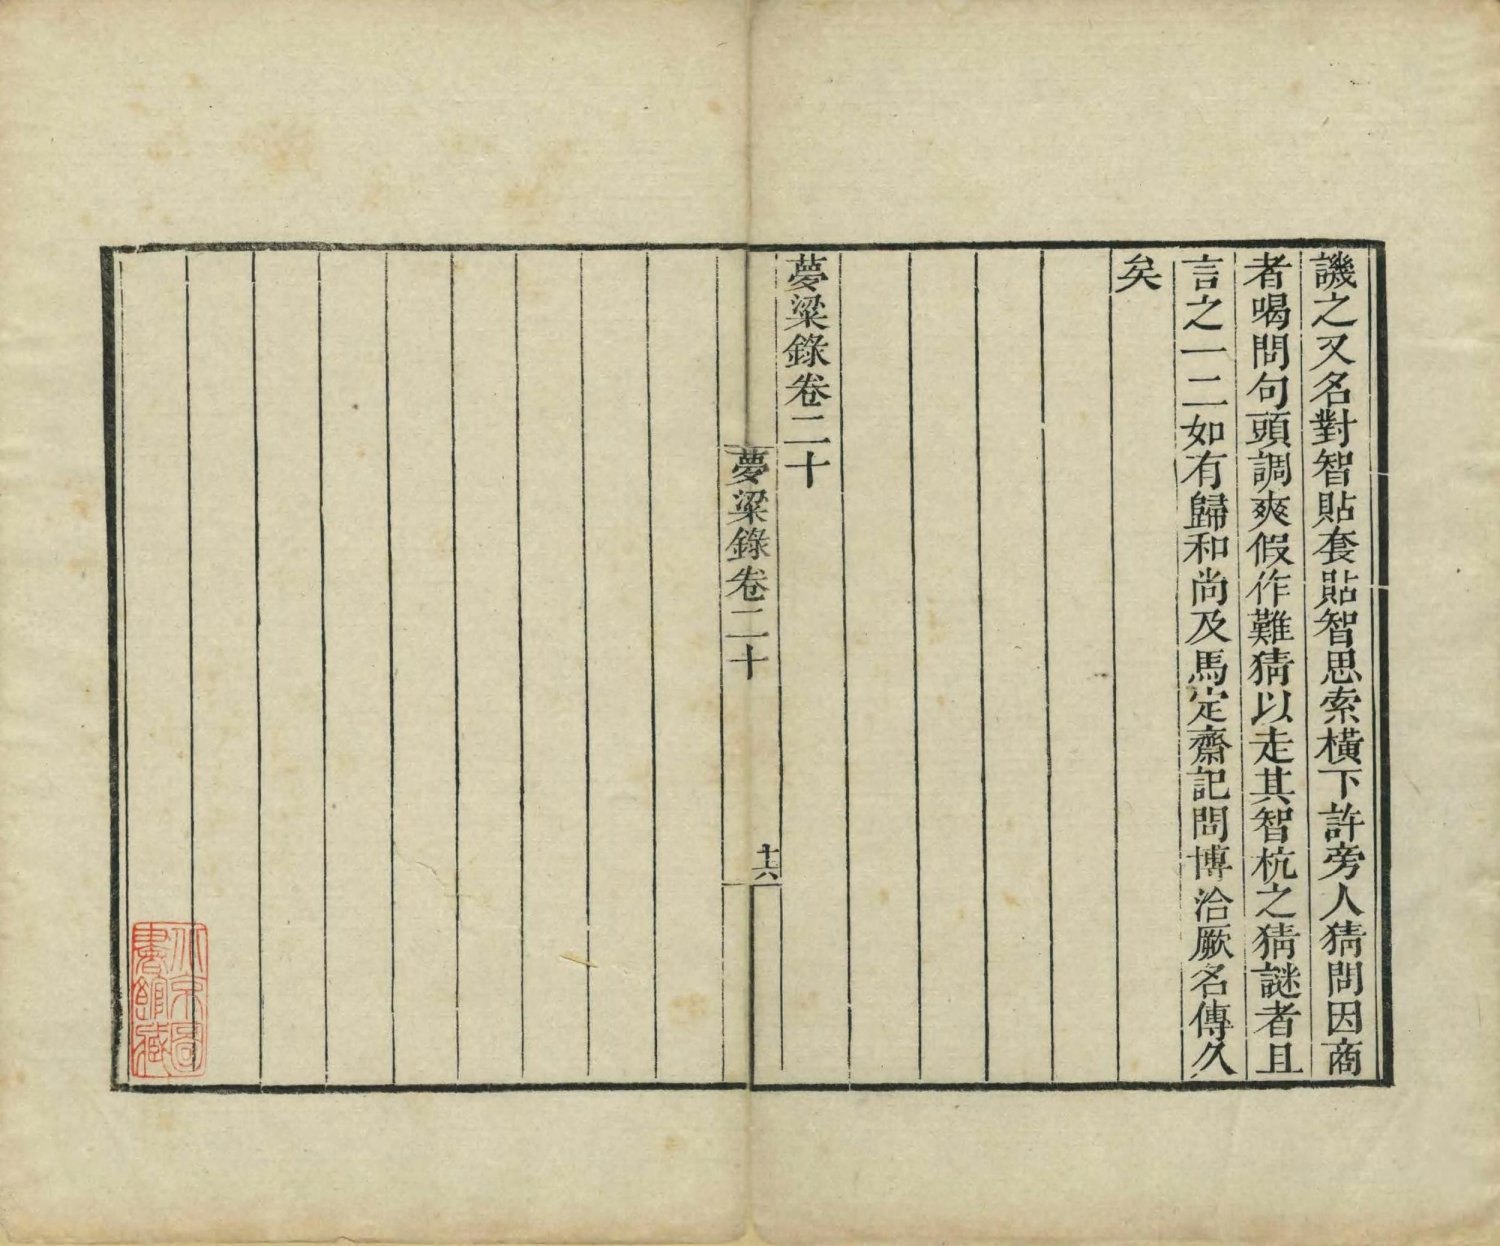 譏之又名對智貼套貼智思索橫下許旁人猜問因商
者喝問句頭調爽假作難猜以走其智杭之猜謎者且
言之一二如有歸和尚及馬定齋記問博洽厥名傳久
矣
夢粱錄卷二十
夢粱錄卷二十
十六
北京圖
書館藏